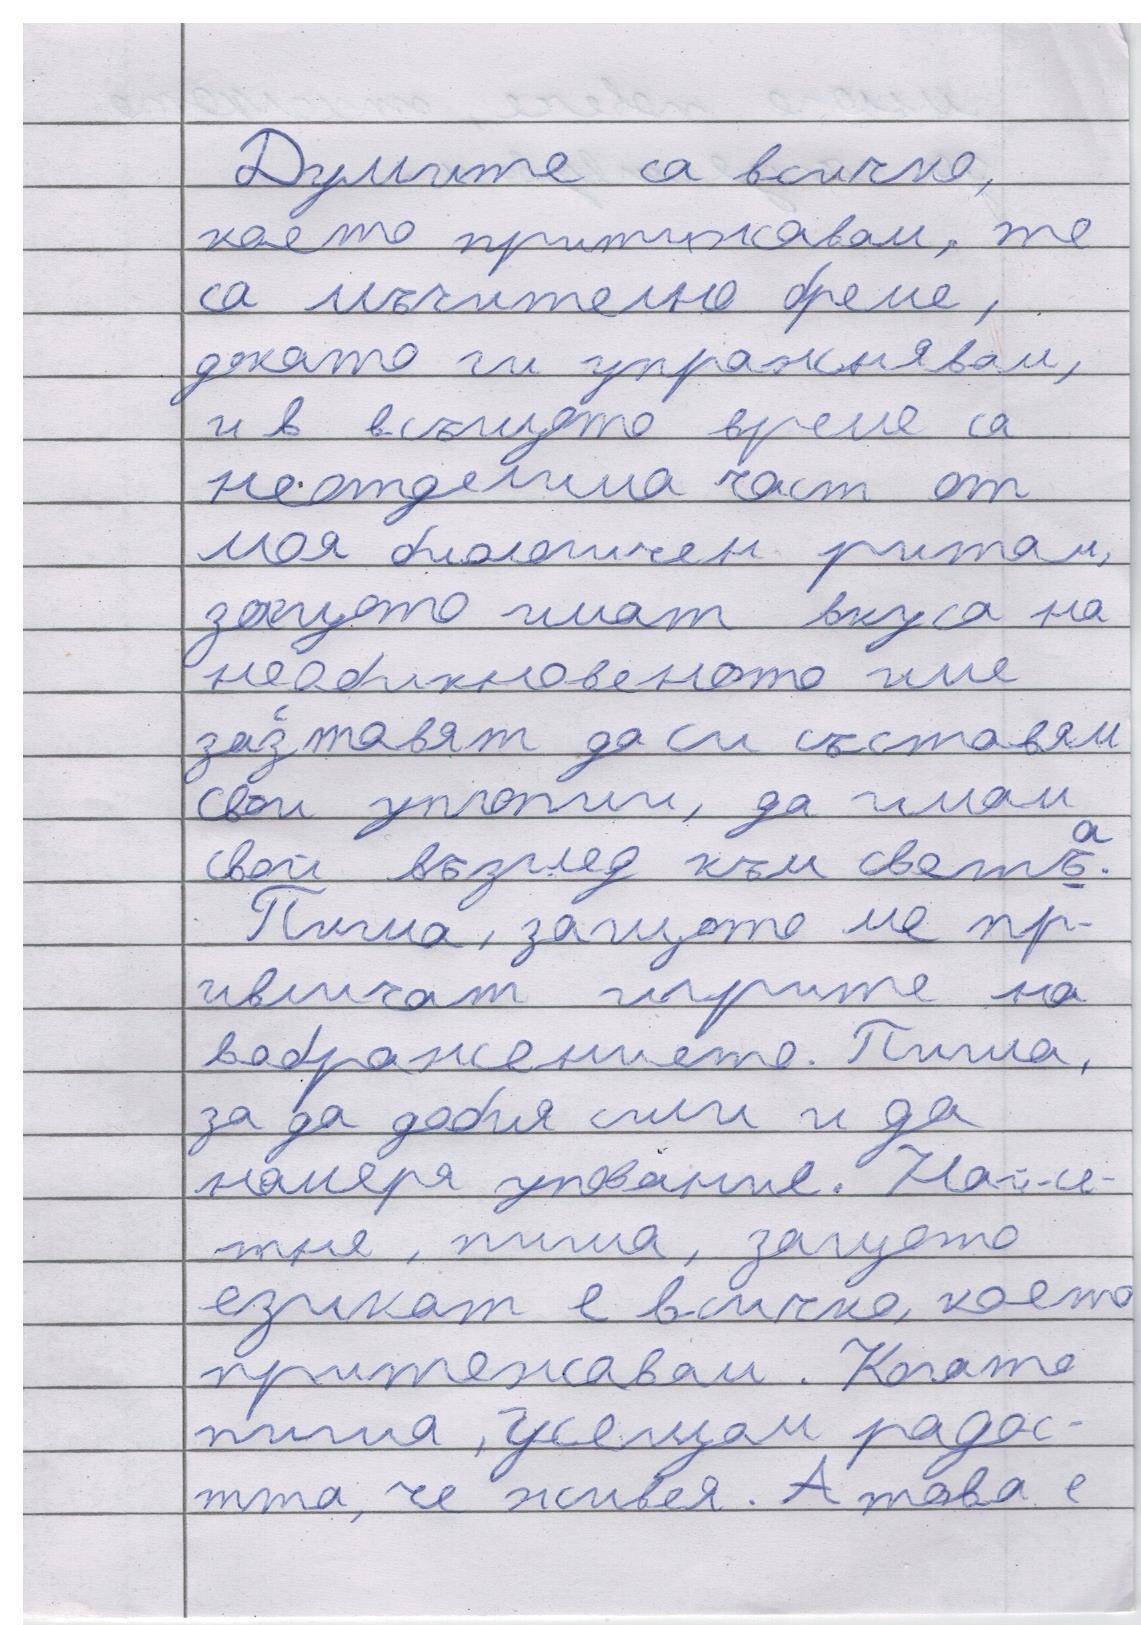 Думите са всичко,
което притижавам, те
са мъчително бреме,
докато ги упражнявам,
и в всъщото време са
неотделима част от
моя биологичен ритам,
защото имат вкуса на
необикновеното име
заставят да си съставям
свои утопии, да имам
свой възглед към света.
Пиша, защото ме пр-
ивличат игрите на
вображението. Пиша,
за да добия сили и да
намеря упование. Най-се-
тне, пиша, защото
езикат е всичко, което
притежавам. Когато
пиша, усещам радос-
тта, че живея. А това е